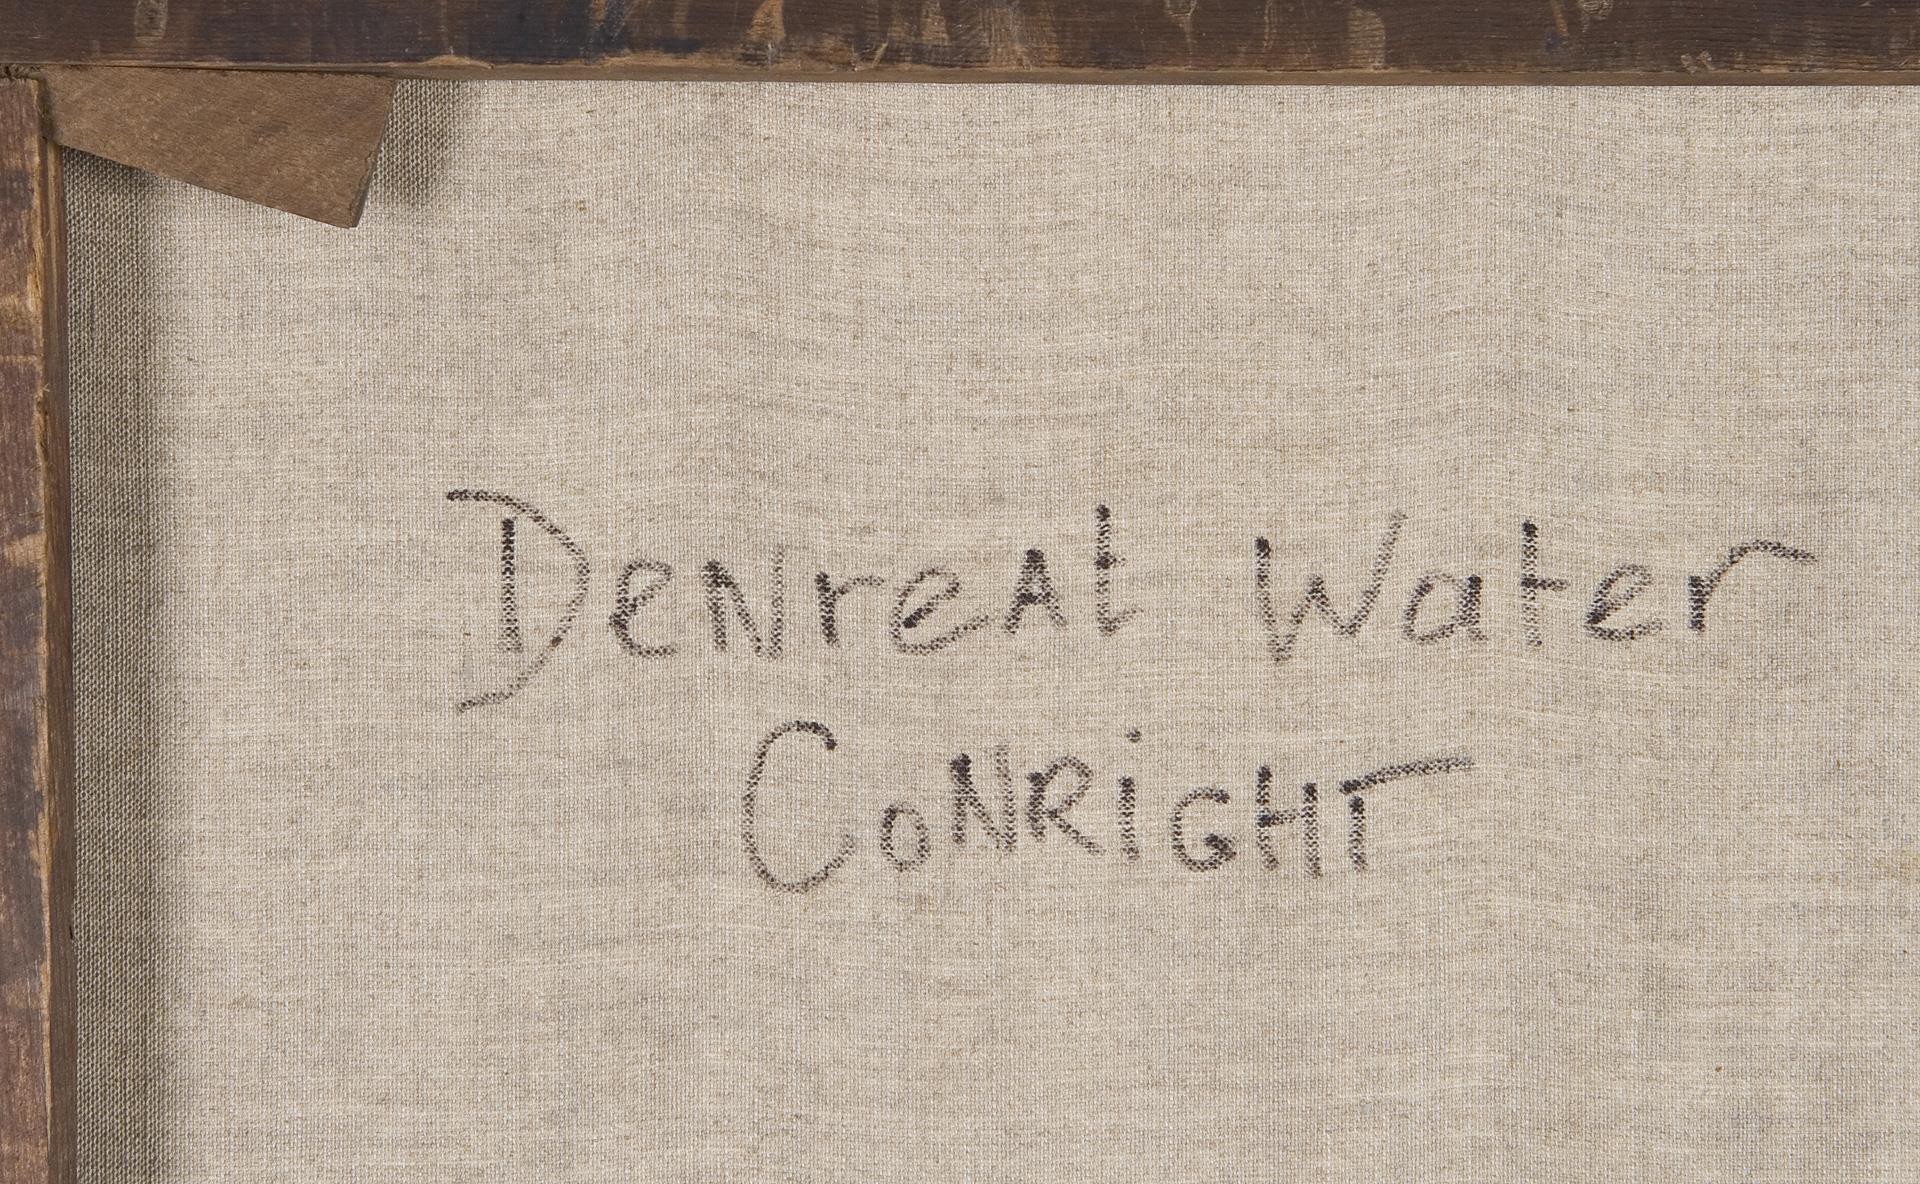 DeNreAt Water
CoNRiGHT